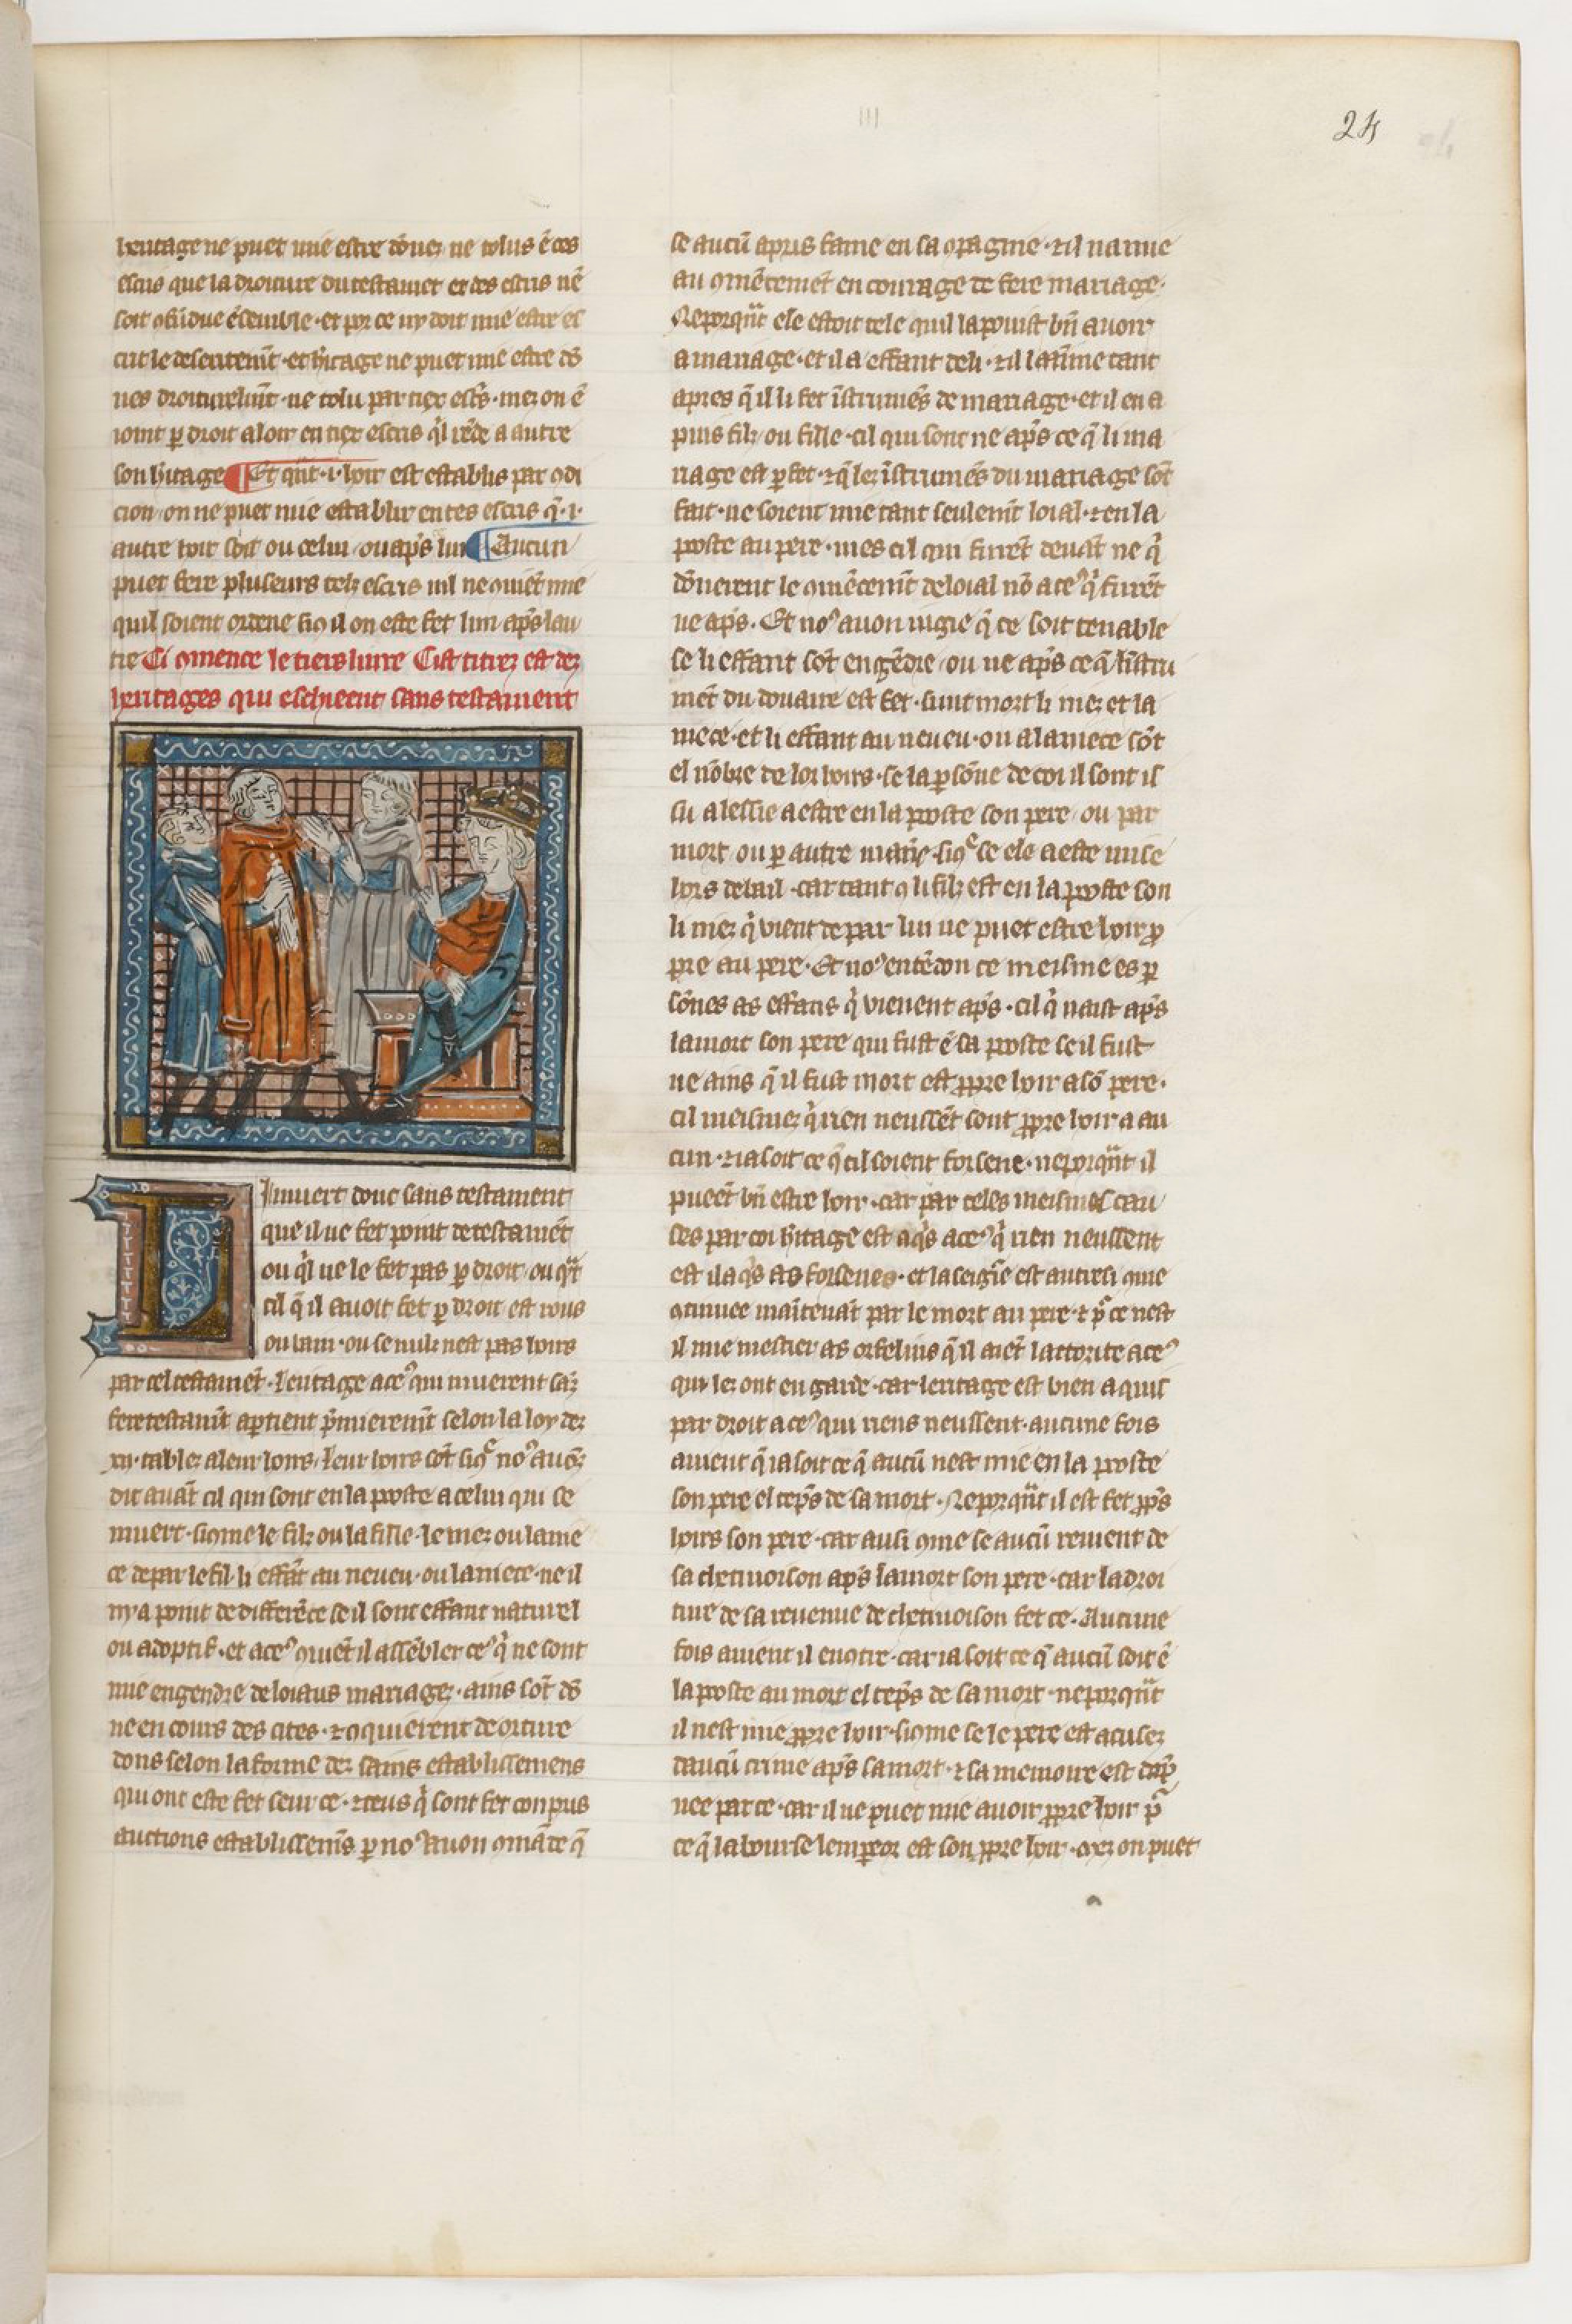 III
24
heritage ne puet mie estre dōnez ne tolus ē ces
escris que la droiture du testamēt et des escris nē
soit 9fūdue ēsemble · et por ce ny doit mie estre es
crit le deseritemēt · et h̄itage ne puet mie estre dō
nes droiturelmēt · ne tolu par tiex escrˢ · mez on ē
ioint p̱ droit a loir en tiex escris q̇l rēde a autre
son h̄itage ¶ Et qn̄t · i · hoir est establis par 9di
cion on ne puet mie establir en tes escris q̄ · i ·
autre hoir soit ou celui ou ap̄s lui ¶ Aucun
puet fere pluseurs telz escris nil ne 9uiēt mie
quil soient ordene si9 il on este fet lun ap̄s lau
tre Ci 9mence le tiers liure Cist titrez est dez
heritages qui eschieent sans testament
Il muert donc sans testament
que il ne fet point de testamēt
ou q̇l ne le fet pas p̱ droit · ou qn̄t
cil q̄ il auoit fet p̱ droit est rous
ou vain · ou se nulz nest pas hoirs
par cel testamēt · leritage a ceꝰ qui muerent sāz
fere testamt̄ apartient p̄mieremt̄ selon la loy dez
xii · tablez a leur hoirs · leur hoirs sōt sicͨ noꝰ auōz
dit auāt cil qui sont en la poste a celui qui se
muert · si9me le filz ou la fille · le niez ou la nie
ce de par le fil · li effāt au neueu · ou la niece · ne il
ny a point de differēce se il sont effant naturel
ou adoptif · et a ceꝰ 9uiēt il assēbler ceꝰ q̇ ne sont
mie engendre de loiaus mariagez · ains sōt dō
ne en cours des cites · ⁊ 9quierent de orture
dons selon la forme dez sains establissemens
qui ont este fet seur ce · ⁊ ceus q̇ sont fet con pus
auctions establissemēs p̱ noꝰ auon 9māde q̄
se aucū a pris fame en sa 9pagnie · ⁊ il na mie
au 9mēcemēt en courage de fere mariage ·
Neporqn̄t ele estoit tele quil la pouist bn̄ auoir
a mariage · et il a effant de li · ⁊ il laīme tant
apres q̄ il li fet īstrumēs de mariage · et il en a
puis filz ou fille · cil qui sont ne ap̄s ce q̄ li ma
riage est p̱fet · ⁊ q̄ lez īstrumēs du mariage sōt
fait · ne soient mie tant seulemt̄ loial · ⁊ en la
poste au pere · mes cil qui furēt deuāt ne q̇
dōnerent le 9mēcemt̄ de loial nō a ceꝰ q̇ furēt
ne ap̄s · Et noꝰ auon iugie q̄ ce soit tenable
se li effant sōt engēdre ou ne ap̄s ce q̄ līstru
mēt du douaire est fet · sunt mort li niez et la
niece · et li effant au neueu · ou a la niece sōt
el nōbre de loi hoirs · se la p̱sōne de coi il sont is
su a lessie a estre en la poste son pere · ou par
mort ou p̱ autre manie̅ · sicͨ se ele a este mise
hors de bail · car tant 9 li filz est en la poste son
li niez q̇ vient de par lui ne puet estre hoir p̱
pre au pere · Et noꝰ entēdon ce meisme es p̱
sōnes as effans q̇ vienent ap̄s · cil q̇ naist ap̄s
la mort son pere qui fust ē sa poste se il fust
ne ains q̄ il fust mort est p̱pre hoir a sō pere ·
cil meismez q̇ rien neussēt sont p̱pre hoir a au
cun · ⁊ ia soit ce q̄ cil soient forsene · neporqn̄t il
pueēt bn̄ estre hoir · car par celes meismes cau
ses par coi h̄itage est aq̇s a ceꝰ q̇ rien neussent
est il aq̇s as forsenes · et la seign̄ie est autresi 9me
9tinuee maītenāt par le mort au pere · ⁊ p̄ ce nest
il mie mestier as orfelins q̄ il aiēt lattorite a ceꝰ
qui lez ont en garde · car leritage est bien aquis
par droit a ceꝰ qui riens neussent · aucune fois
auient q̄ ia soit ce q̄ aucū nest mie en la poste
son pere el tēps de sa mort · Neporqn̄t il est fet p̱ps
hoirs son pere · car ausi 9me se aucū reuient de
sa chetiuoison ap̄s la mort son pere · car la droi
ture de sa reuenue de chetiuoison fet ce · Aucune
fois auient il en9tre · car ia soit ce q̄ aucū soit ē
la poste au mort el tēps de sa mort · neporqn̄t
il nest mie p̱pre hoir · si9me se le pere est acusez
daucū crime ap̄s sa mort · ⁊ sa memoire est dāp
nee par ce · car il ne puet mie auoir p̱pre hoir p̄
ce q̄ la bourse lemp̱eor est son p̱pre hoir · mez on puet